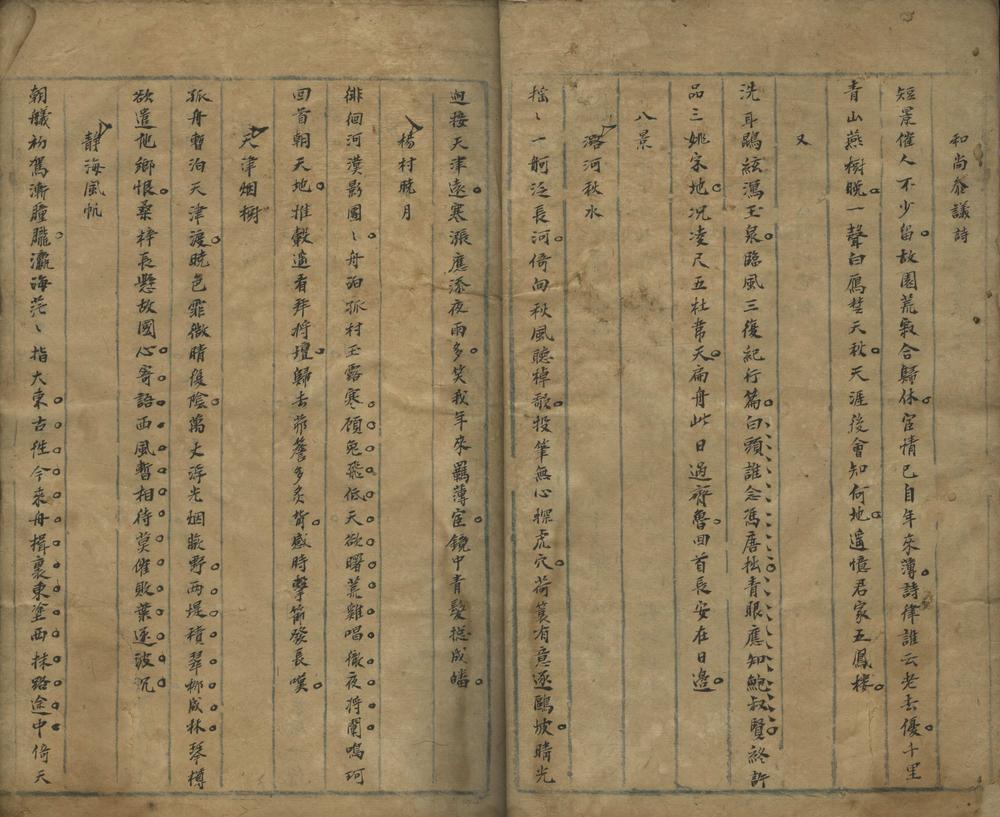 和尚參議詩
短景催人不少留故園荒寂合歸休宦情已自年來薄詩律誰云老去優十里
青山燕樹晚一聲白鴈楚天秋天涯後會知何地還憶君家五鳳樓
又
洗耳鵾絃瀉玉泉臨風三復紀行篇白頭誰念馮唐拙青眼應知鮑叔賢終許
品三姚宋地况凌尺五杜韋天扁舟此日過齊魯回首長安在日邊
八景
潞河秋水
摇〻一舸泛長河倚向秋風聽棹歌投筆無心探虎穴荷蓑有意逐鷗坡晴光
迥接天津遠寒漲應添夜雨多笑我年來羈薄宦鏡中青髮總成皤
楊村曉月
徘徊河漢影團〻舟泊孤村玉露寒顧兔飛低天欲曙荒雞唱徹夜將闌鳴珂
回首朝天地推轂遙看拜將壇歸去茆簷多炙背感時擊節發長嘆
天津烟樹
孤舟暫泊天津渡曉色霏微晴復陰萬丈浮光烟蔽野兩堤積翠柳成林琴樽
欲遣他鄉恨桑梓長懸故國心寄語西風暫相待莫催敗葉逐波沉
靜海風帆
朝艤初駕漸朣朧瀛海茫〻指大東古往今來舟楫裏東塗西抹路途中倚天